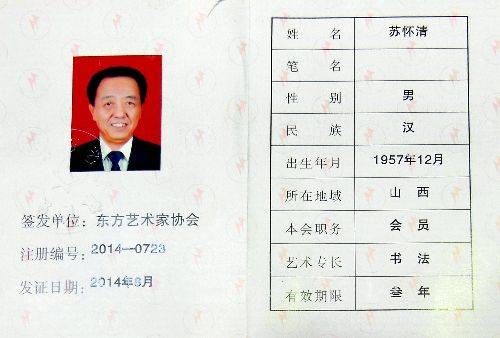 签发单位：东方艺术家协会
注册编号：2014—0723
发证日期：2014年8月
姓名 苏怀清
笔名
性别 男
民族 汉
出生年月 1957年12月
所在地域 山西
本会职务 会员
艺术专长 书法
有效期限 叁年